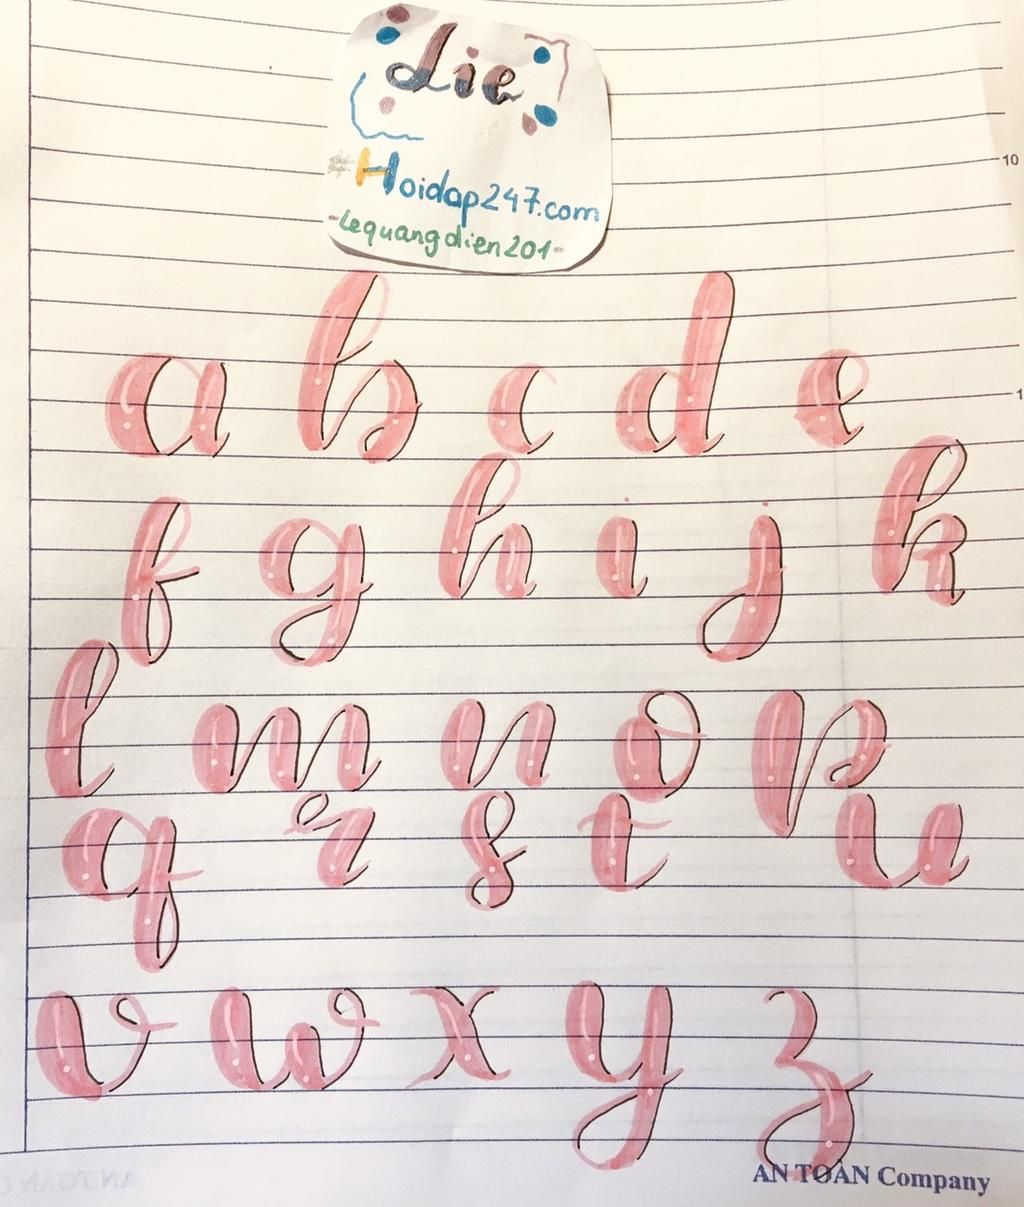 die
#Hoidap247.com
-Lequangdien201-
10
a b c d e
1
f g h i j k
l m n o p
q r s t u
v w x y z
AN TOÀN Company